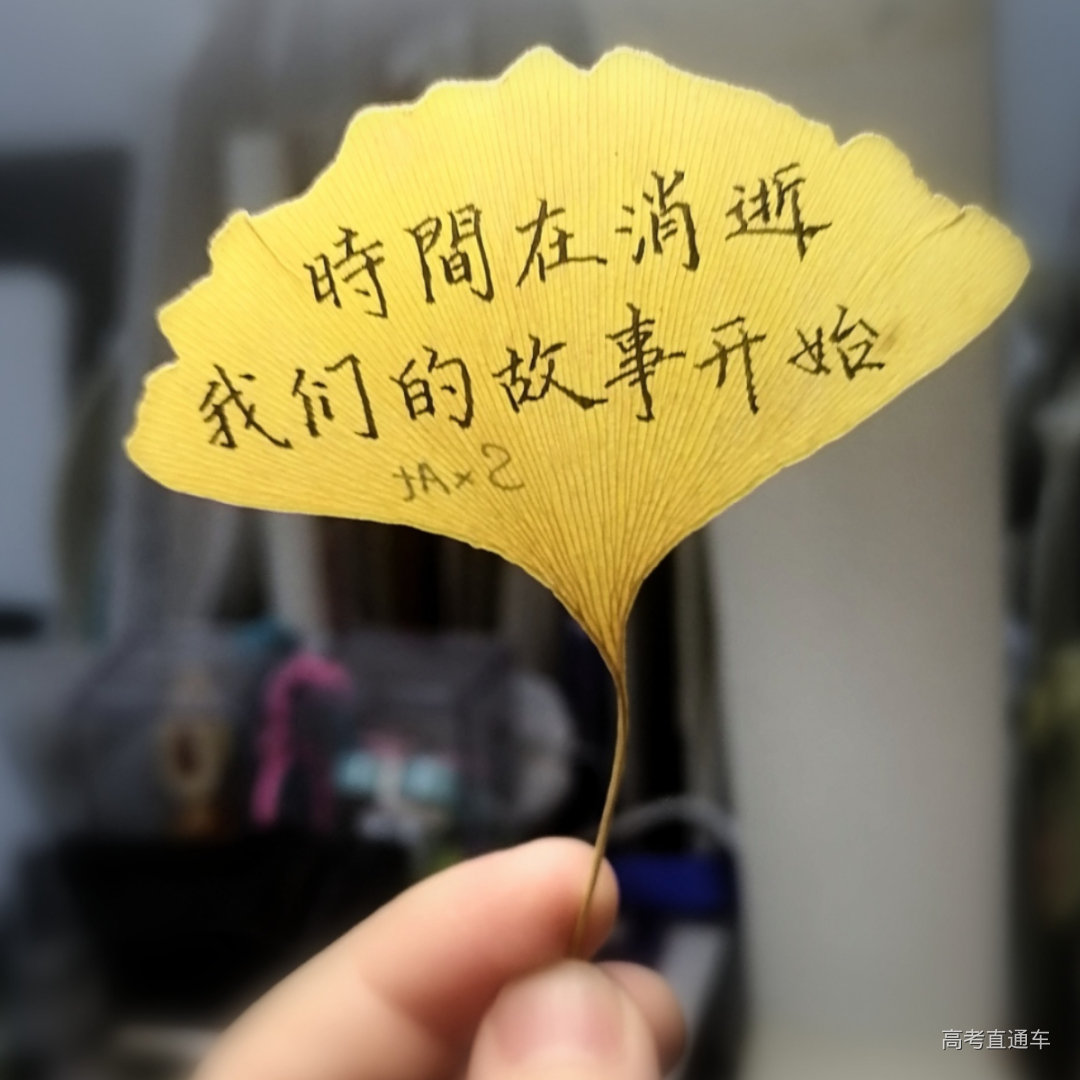 時間在消逝
我们的故事开始
高考直通车